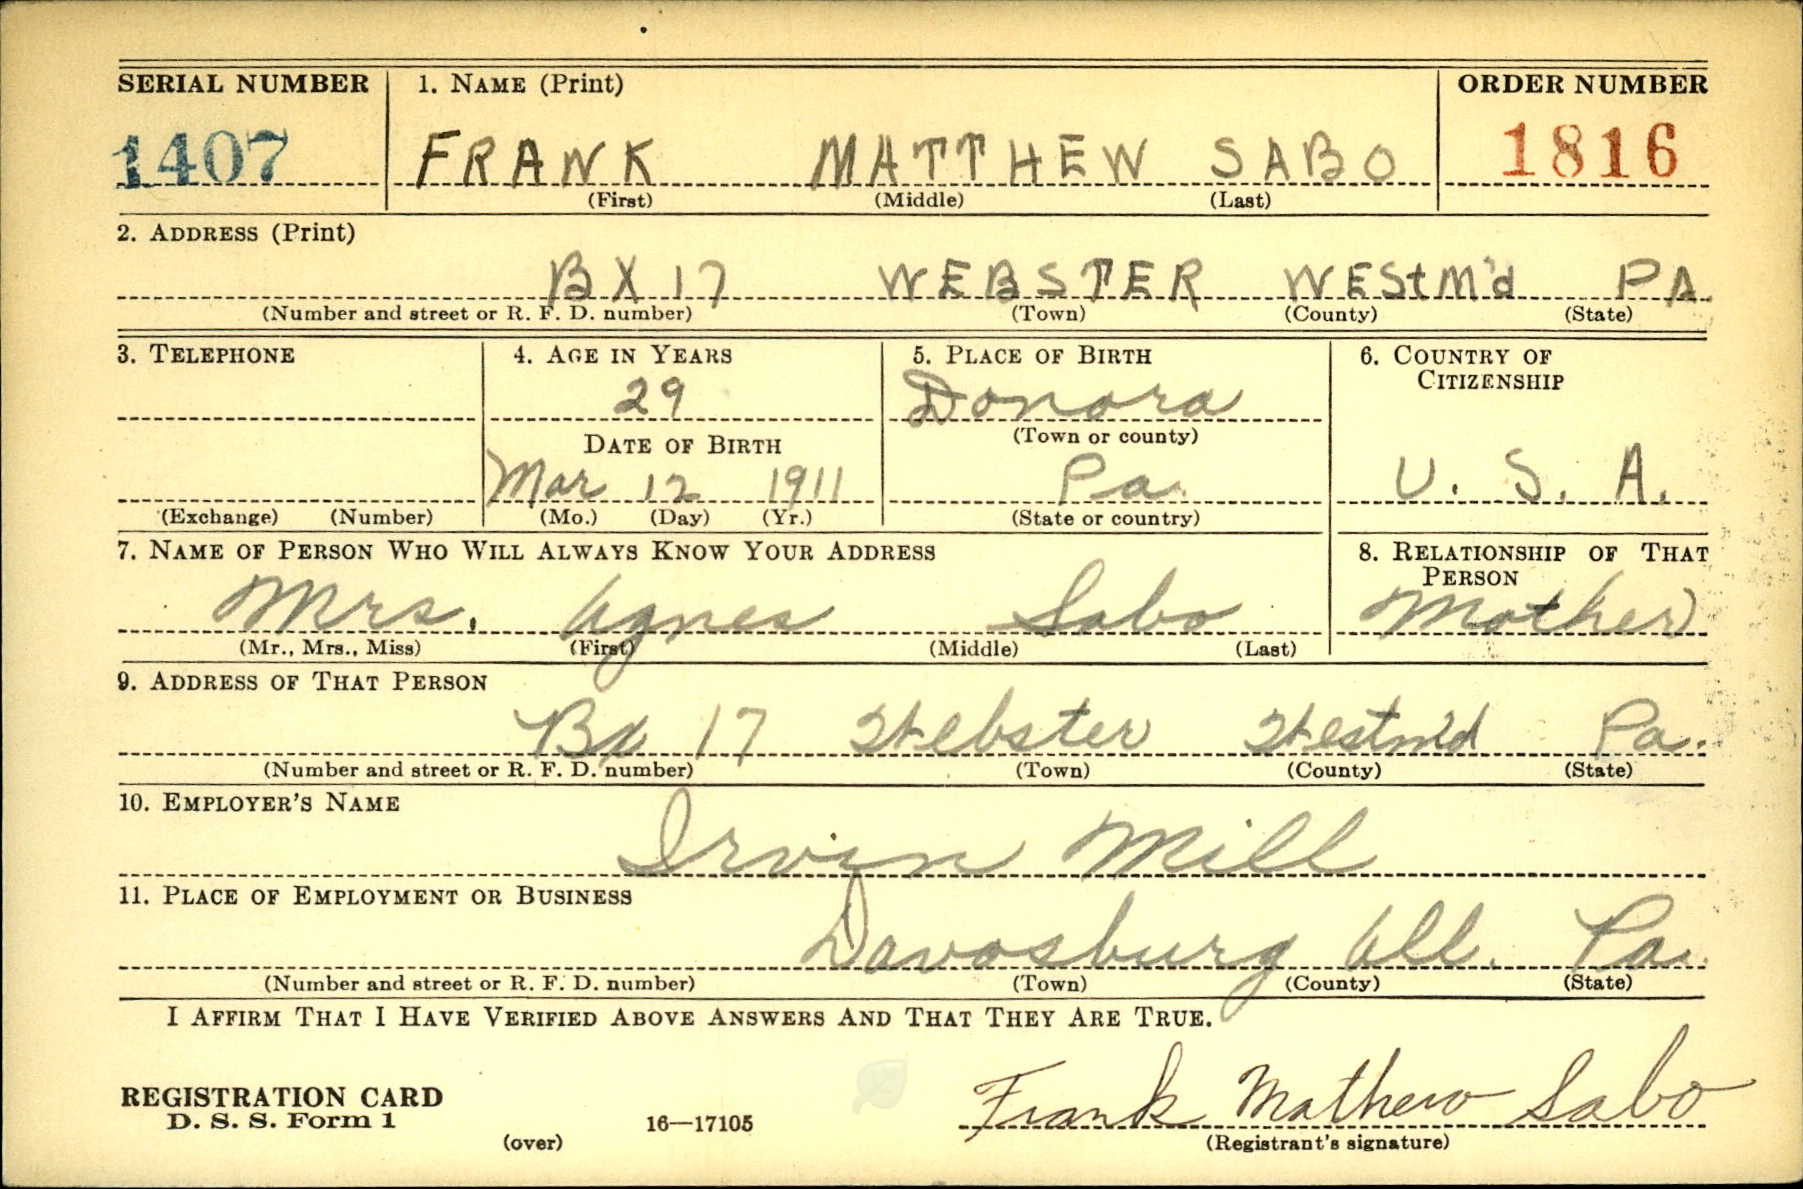 SERIAL NUMBER 1. NAME (Print) ORDER NUMBER
1407 FRANK MATTHEW SABO 1816
(First) (Middle) (Last)
2. ADDRESS (Print)
BX 17 WEBSTER WEStM'd PA.
(Number and street or R. F. D. number) (Town) (County) (State)
3. TELEPHONE 4. AGE IN YEARS 5. PLACE OF BIRTH 6. COUNTRY OF CITIZENSHIP
29 Donora
(Town or county)
DATE OF BIRTH
Mar 12 1911 Pa. U. S. A.
(Exchange) (Number) (Mo.) (Day) (Yr.) (State or country)
7. NAME OF PERSON WHO WILL ALWAYS KNOW YOUR ADDRESS 8. RELATIONSHIP OF THAT PERSON
Mrs. Agnes Sabo Mother
(Mr., Mrs., Miss) (First) (Middle) (Last)
9. ADDRESS OF THAT PERSON
Bx 17 Webster Westm'd Pa.
(Number and street or R. F. D. number) (Town) (County) (State)
10. EMPLOYER'S NAME
Irvin Mill
11. PLACE OF EMPLOYMENT OR BUSINESS
Davosburg All. Pa.
(Number and street or R. F. D. number) (Town) (County) (State)
I AFFIRM THAT I HAVE VERIFIED ABOVE ANSWERS AND THAT THEY ARE TRUE.
REGISTRATION CARD
D. S. S. Form 1
(over) 16—17105
Frank Mathew Sabo
(Registrant's signature)